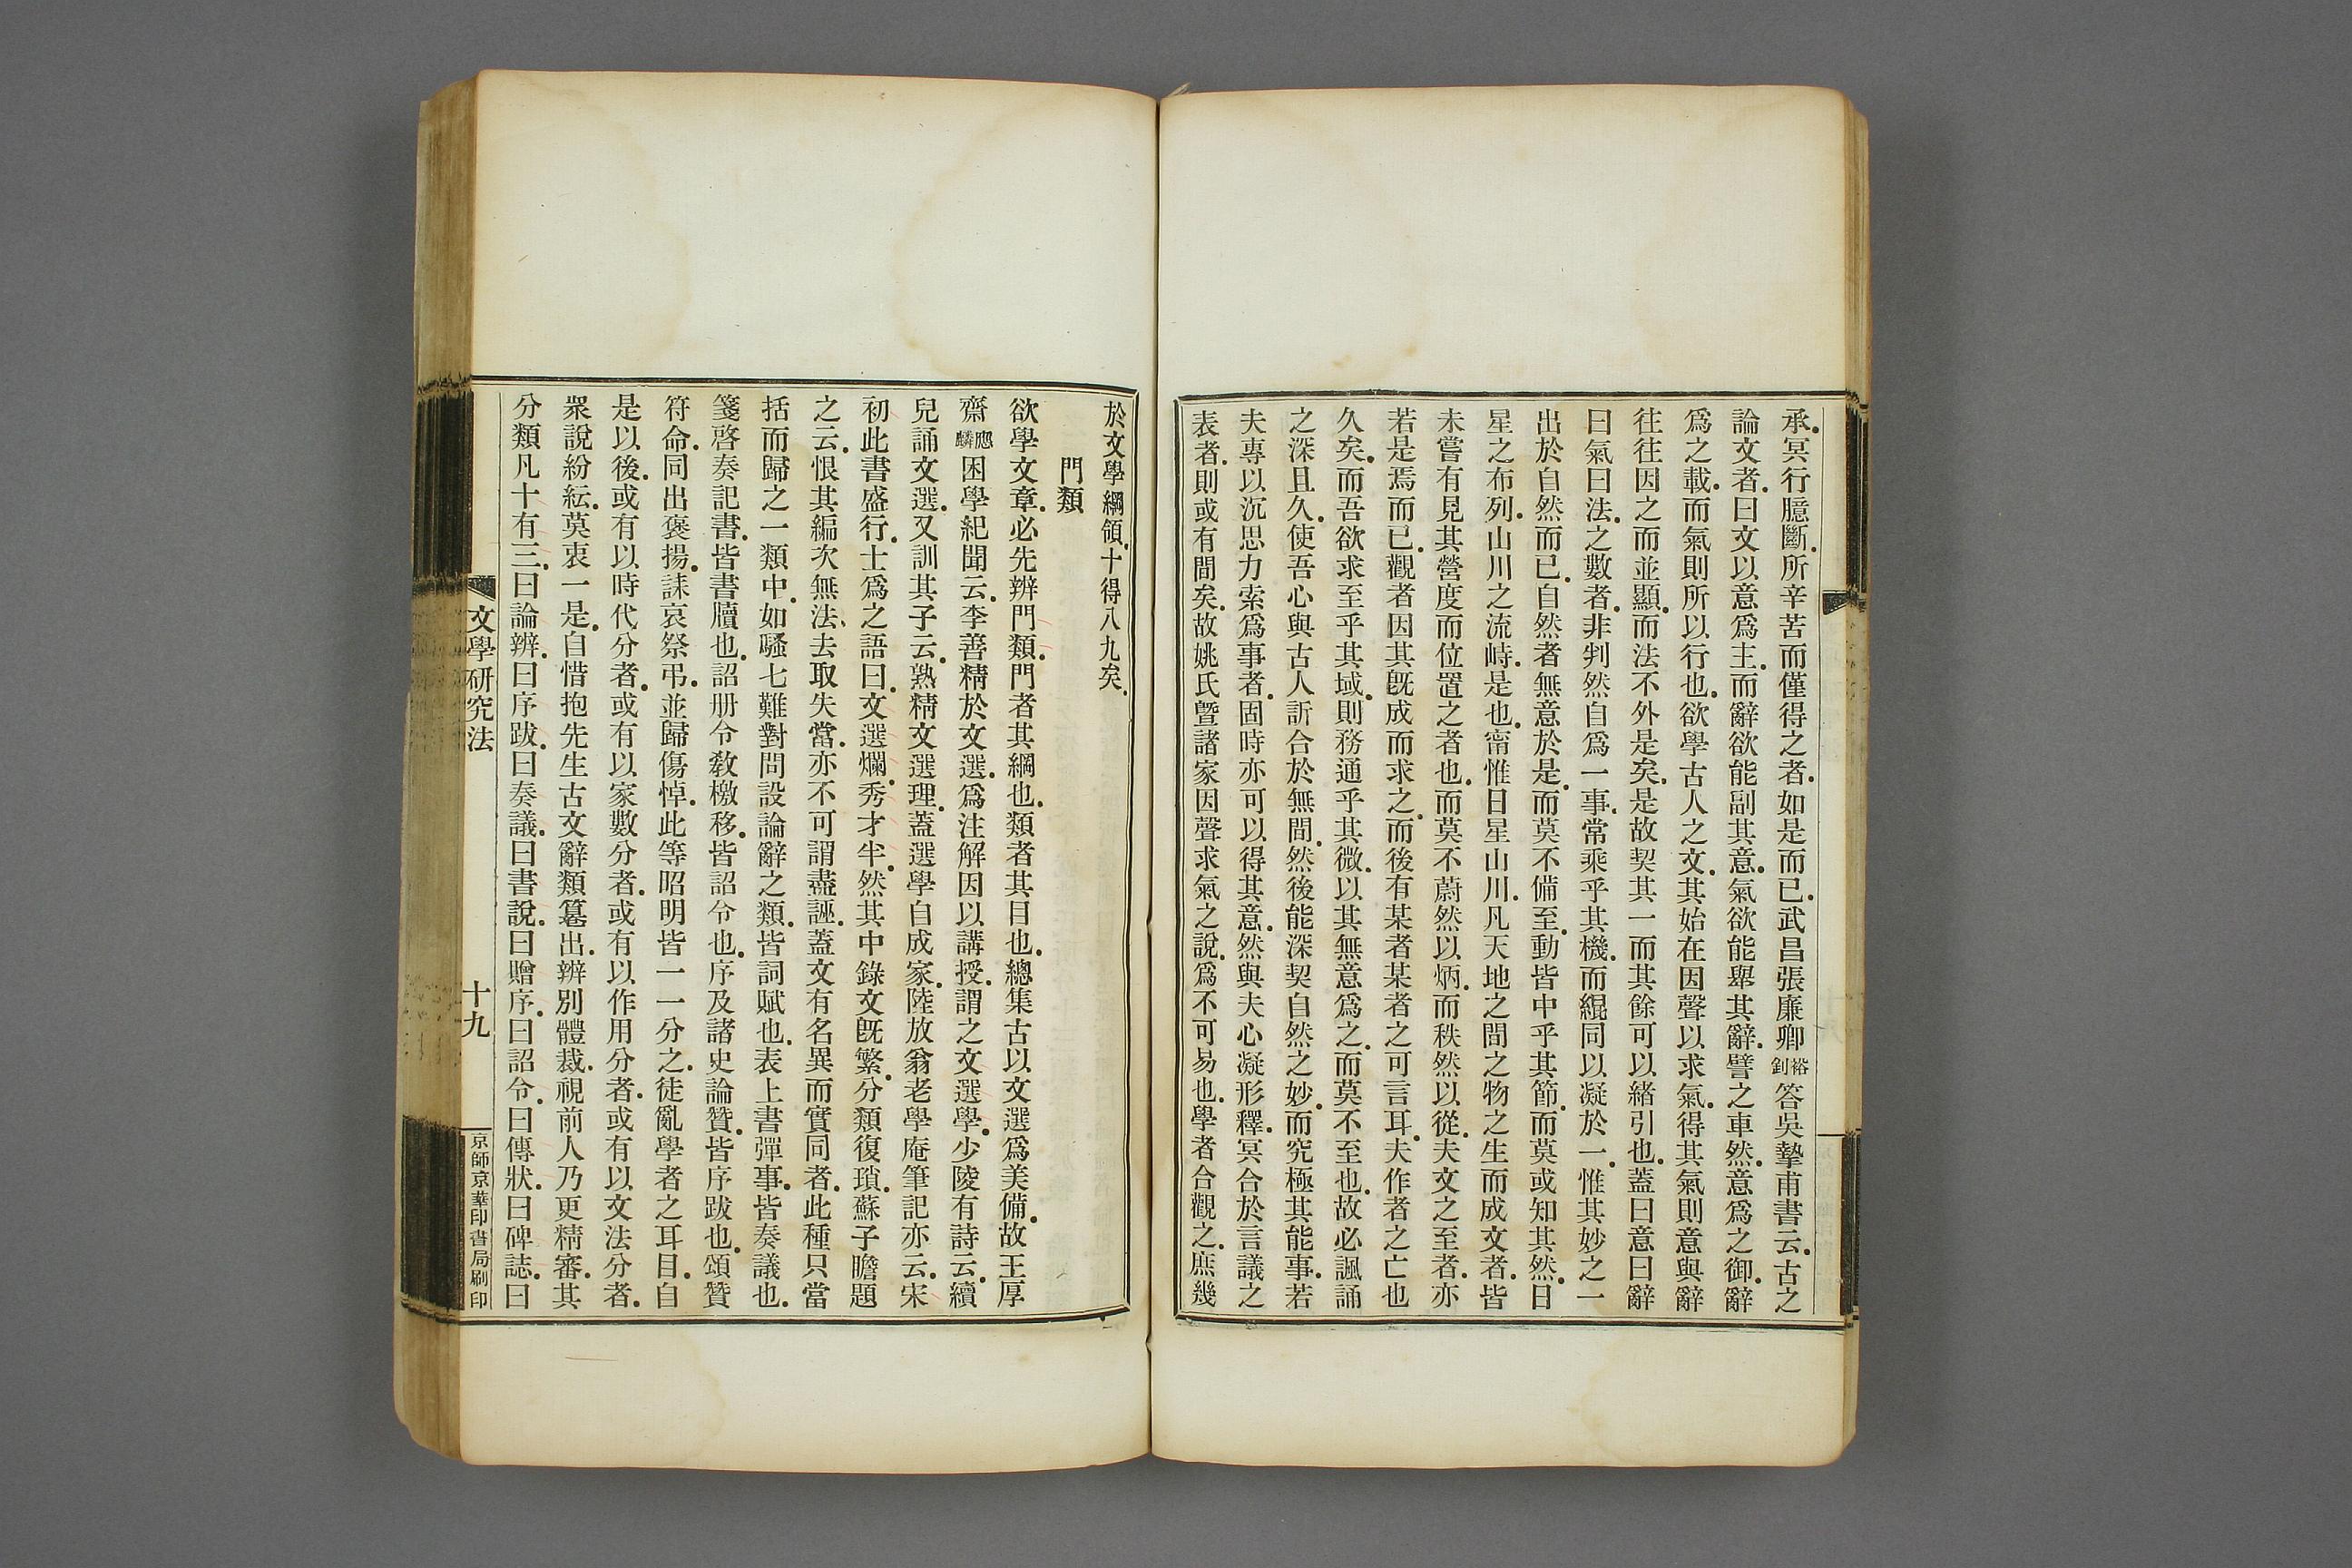 承．冥行臆斷．所辛苦而僅得之者．如是而已．武昌張廉卿裕釗答吳摯甫書云．古之
論文者．曰文以意爲主．而辭欲能副其意．氣欲能舉其辭．譬之車然．意爲之御．辭
爲之載．而氣則所以行也．欲學古人之文．其始在因聲以求氣．得其氣則意與辭
往往因之而並顯．而法不外是矣．是故契其一而其餘可以緒引也．蓋曰意曰辭
曰氣曰法．之數者．非判然自爲一事．常乘乎其機．而緄同以凝於一．惟其妙之一
出於自然而已．自然者無意於是．而莫不備至．動皆中乎其節．而莫或知其然．日
星之布列．山川之流峙．是也．甯惟日星山川．凡天地之間之物之生而成文者．皆
未嘗有見其營度而位置之者也．而莫不蔚然以炳．而秩然以從．夫文之至者．亦
若是焉而已．觀者因其旣成而求之．而後有某者某者之可言耳．夫作者之亡也
久矣．而吾欲求至乎其域．則務通乎其微．以其無意爲之．而莫不至也．故必諷誦
之深且久．使吾心與古人訢合於無間．然後能深契自然之妙．而究極其能事．若
夫專以沉思力索爲事者．固時亦可以得其意．然與夫心凝形釋．冥合於言議之
表者．則或有間矣．故姚氏曁諸家因聲求氣之說．爲不可易也．學者合觀之．庶幾
於文學綱領．十得八九矣．
門類
欲學文章．必先辨門類．門者其綱也．類者其目也．總集古以文選爲美備．故王厚
齋應麟困學紀聞云．李善精於文選．爲注解因以講授．謂之文選學．少陵有詩云．續
兒誦文選．又訓其子云．熟精文選理．蓋選學自成家．陸放翁老學庵筆記亦云．宋
初此書盛行．士爲之語曰．文選爛．秀才半．然其中錄文旣繁．分類復瑣．蘇子瞻題
之云．恨其編次無法．去取失當．亦不可謂盡誣．蓋文有名異而實同者．此種只當
括而歸之一類中．如騷七難對問設論辭之類．皆詞賦也．表上書彈事．皆奏議也．
箋啓奏記書．皆書牘也．詔册令敎檄移．皆詔令也．序及諸史論贊．皆序跋也．頌贊
符命．同出褒揚．誄哀祭弔．並歸傷悼．此等昭明皆一一分之．徒亂學者之耳目．自
是以後．或有以時代分者．或有以家數分者．或有以作用分者．或有以文法分者．
衆說紛紜．莫衷一是．自惜抱先生古文辭類篹出．辨別體裁．視前人乃更精審．其
分類凡十有三．曰論辨．曰序跋．曰奏議．曰書說．曰贈序．曰詔令．曰傳狀．曰碑誌．曰
文學研究法
十九
京師京華印書局刷印